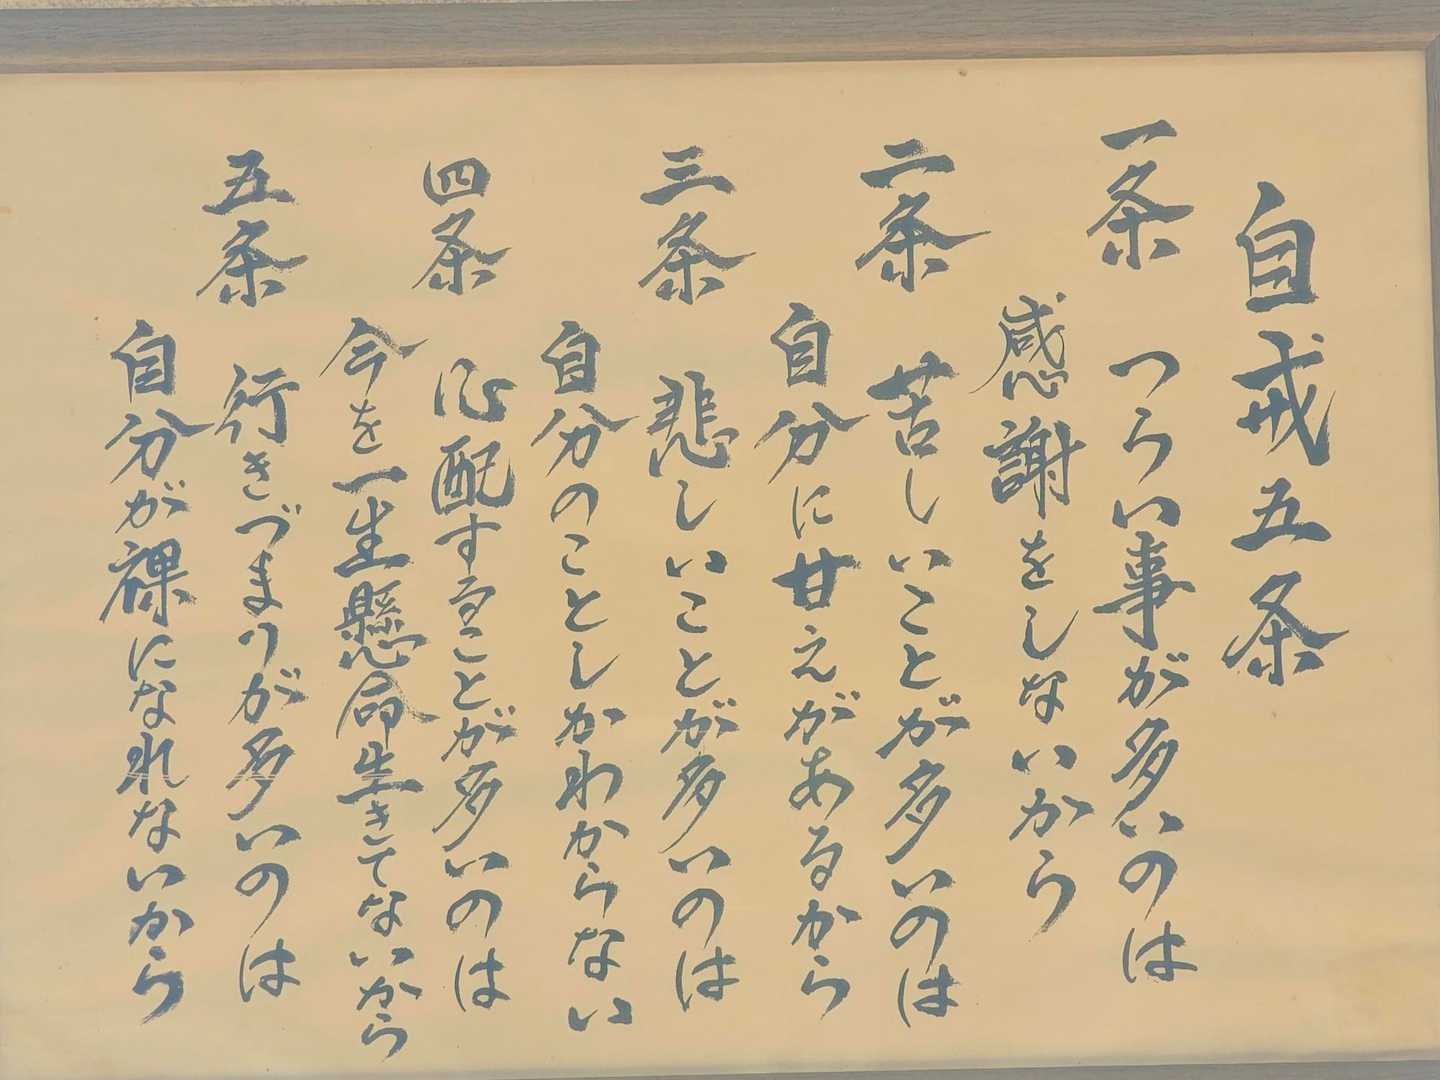 自戒五条
一条 つらい事が多いのは
感謝をしないから
二条 苦しいことが多いのは
自分に甘えがあるから
三条 悲しいことが多いのは
自分のことしかわからない
四条 心配することが多いのは
今を一生懸命生きてないから
五条 行きづまりが多いのは
自分が裸になれないから